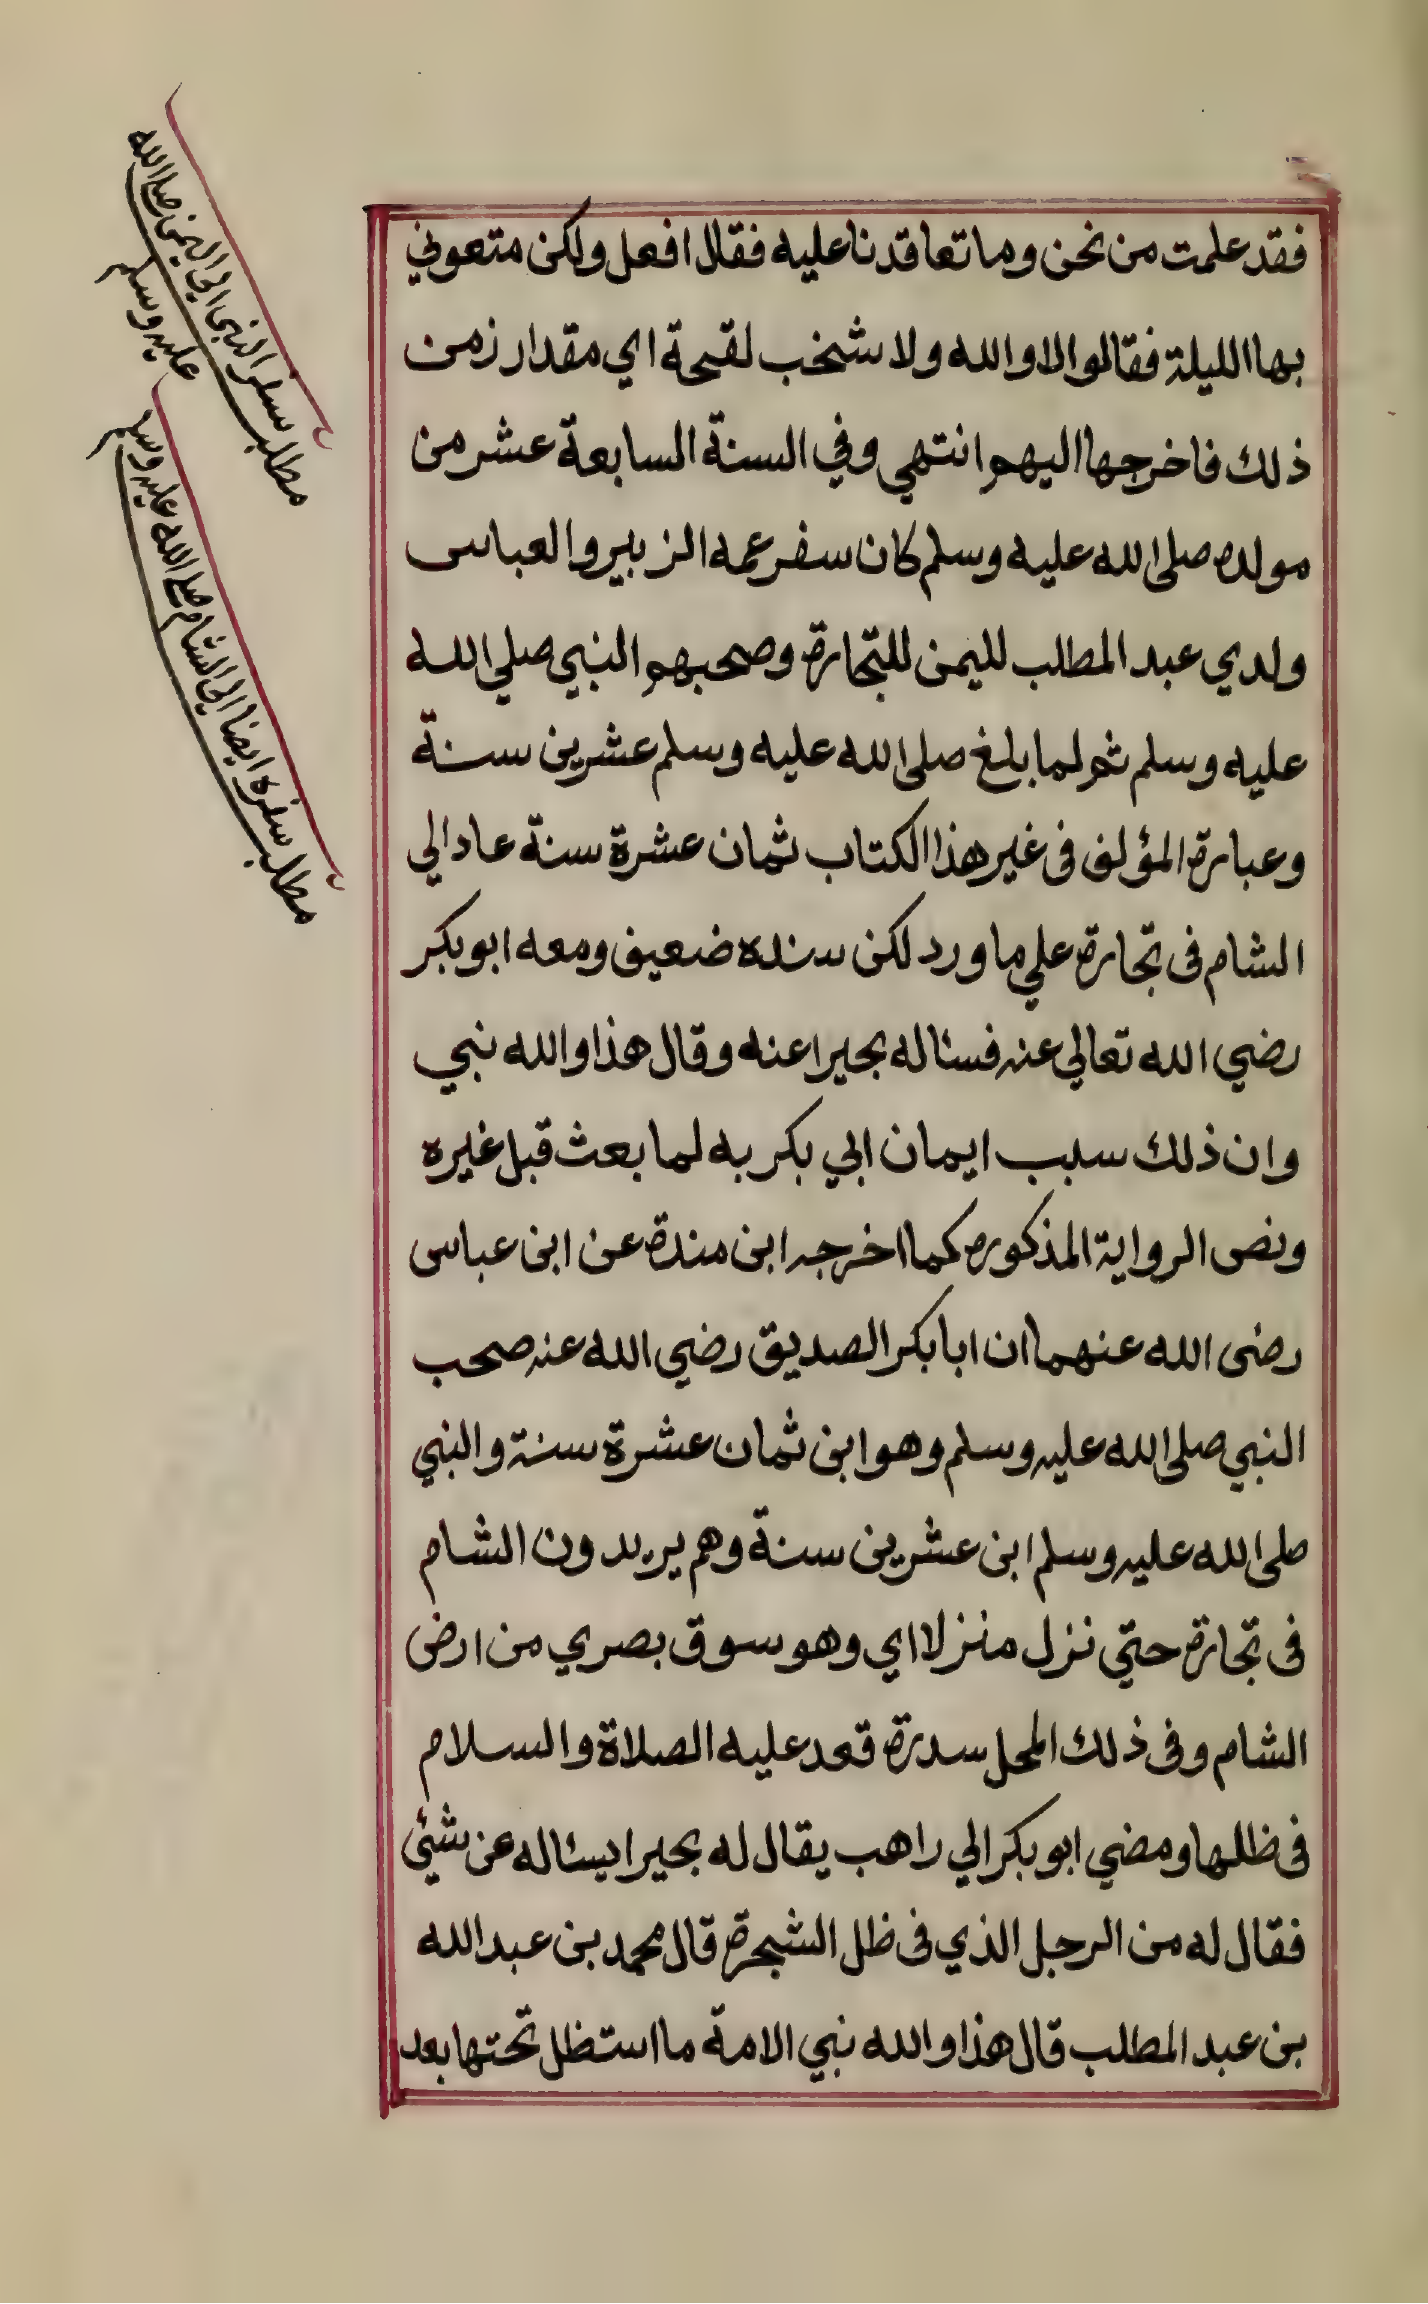 فقد علمت من نحن وما تعاقدنا عليه فقال افعل ولكن متعوني
بها الليلة فقالوا لا والله ولا شخب لقحة اي مقدار زمن
ذلك فاخرجها اليهم انتهي وفي السنة السابعة عشر من
مولده صلى الله عليه وسلم كان سفر عمه الزبير والعباس
ولدي عبد المطلب لليمن للتجارة وصحبهم النبي صلي الله
عليه وسلم ثم لما بلغ صلى الله عليه وسلم عشرين سنة
وعبارة المؤلف فى غير هذا الكتاب ثمان عشرة سنة عاد الي
الشام فى تجارة علي ما ورد لكن سنده ضعيف ومعه ابو بكر
رضي الله تعالي عنه فسئاله بحيرا عنه وقال هذا والله نبي
وان ذلك سبب ايمان ابي بكر به لما بعث قبل غيره
ونص الرواية المذكورة كما اخرجه ابن مندة عن ابن عباس
رضى الله عنهما ان ابا بكر الصديق رضي الله عنه صحب
النبي صلى الله عليه وسلم وهو ابن ثمان عشرة سنة والنبي
صلى الله عليه وسلم ابن عشرين سنة وهم يريدون الشام
فى تجارة حتي نزل منزلا اي وهو سوق بصري من ارض
الشام وفى ذلك المحل سدرة قعد عليه الصلاة والسلام
فى ظلها ومضي ابو بكر الي راهب يقال له بحيرا يسئاله عن شئي
فقال له من الرجل الذي فى ظل الشجرة قال محمد بن عبد الله
بن عبد المطلب قال هذا والله نبي الامة ما استظل تحتها بعد
مطلب سفر النبى الي اليمن صلى الله
عليه وسلم
مطلب سفره ايضا الي الشام صلى الله عليه وسلم